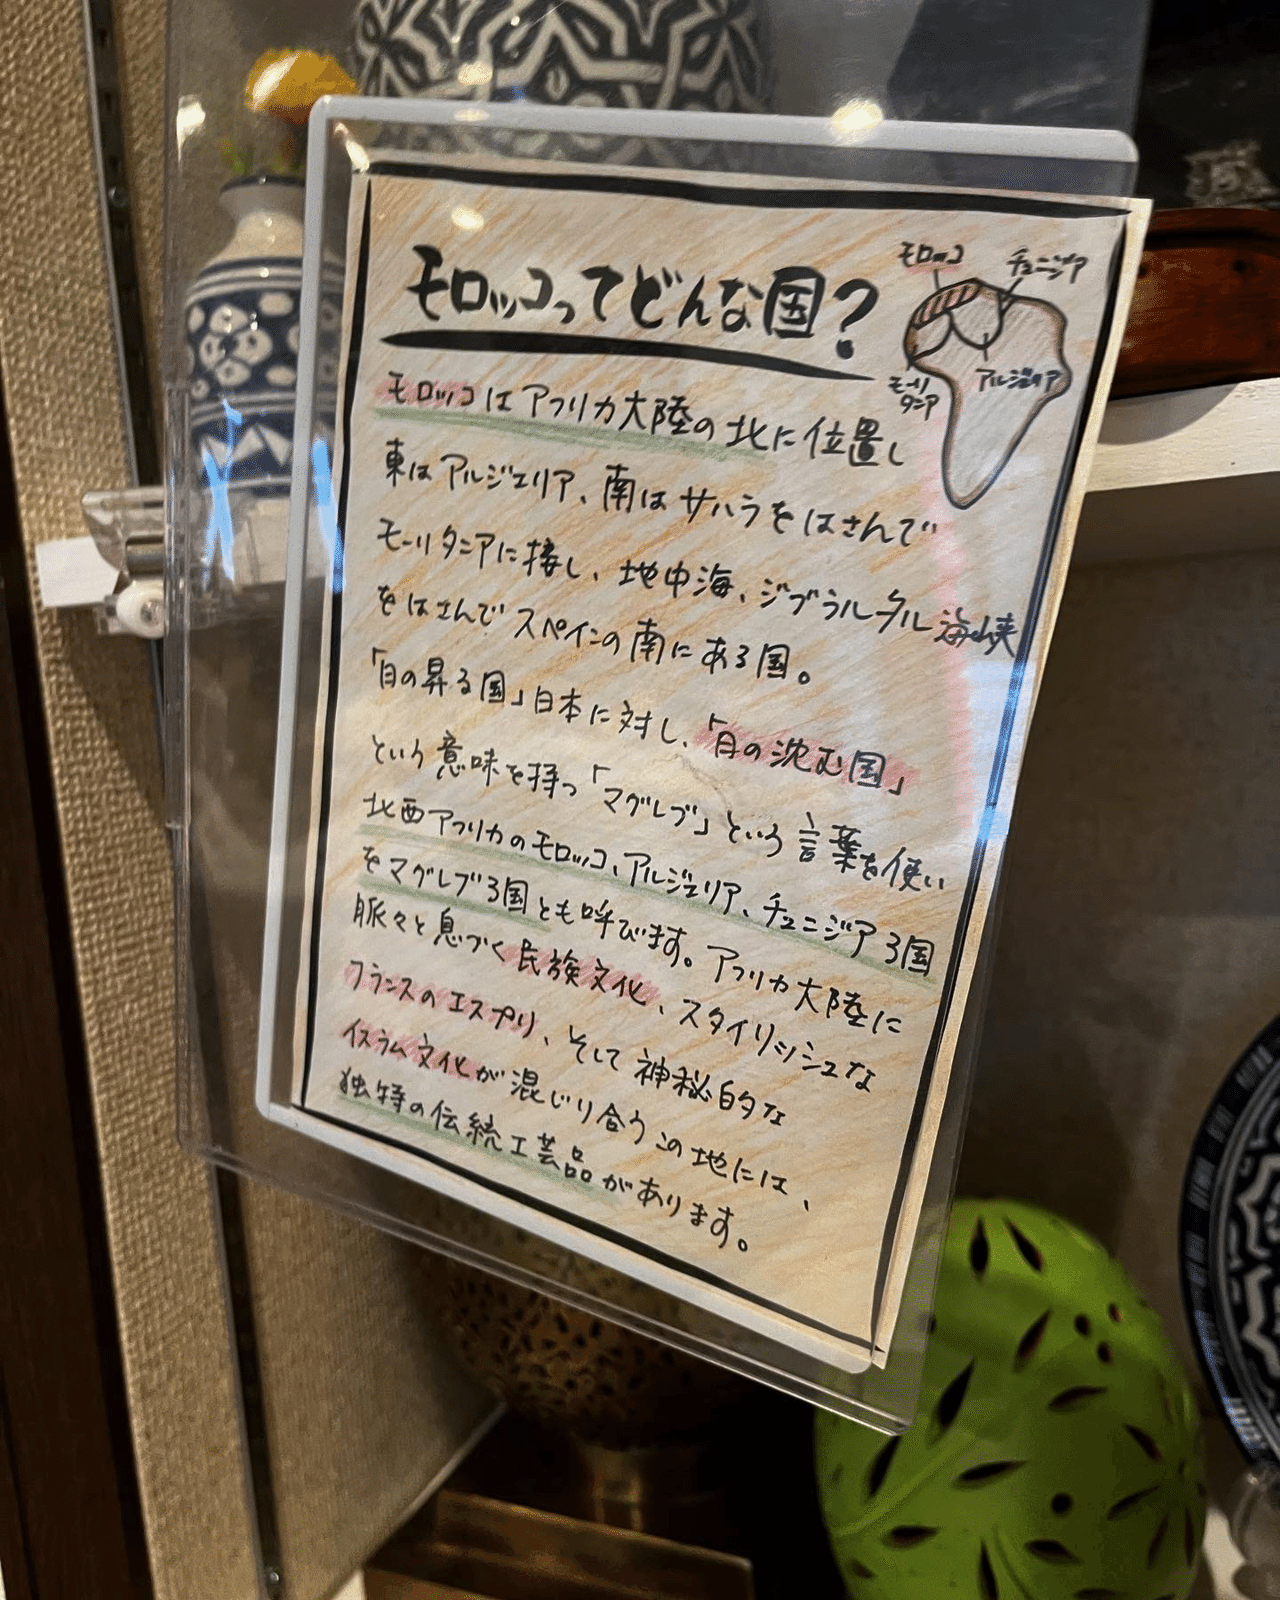 モロッコってどんな国?
モロッコ
チュニジア
モーリ
タニア
アルジェリア
モロッコはアフリカ大陸の北に位置し
東はアルジェリア、南はサハラをはさんで
モーリタニアに接し、地中海、ジブラルタル海峡
をはさんでスペインの南にある国。
「日の昇る国」日本に対し、「日の沈む国」
という意味を持つ「マグレブ」という言葉を使い
北西アフリカのモロッコ、アルジェリア、チュニジア3国
をマグレブ3国とも呼びます。アフリカ大陸に
脈々と息づく民族文化、スタイリッシュな
フランスのエスプリ、そして神秘的な
イスラム文化が混じり合うこの地には、
独特の伝統工芸品があります。